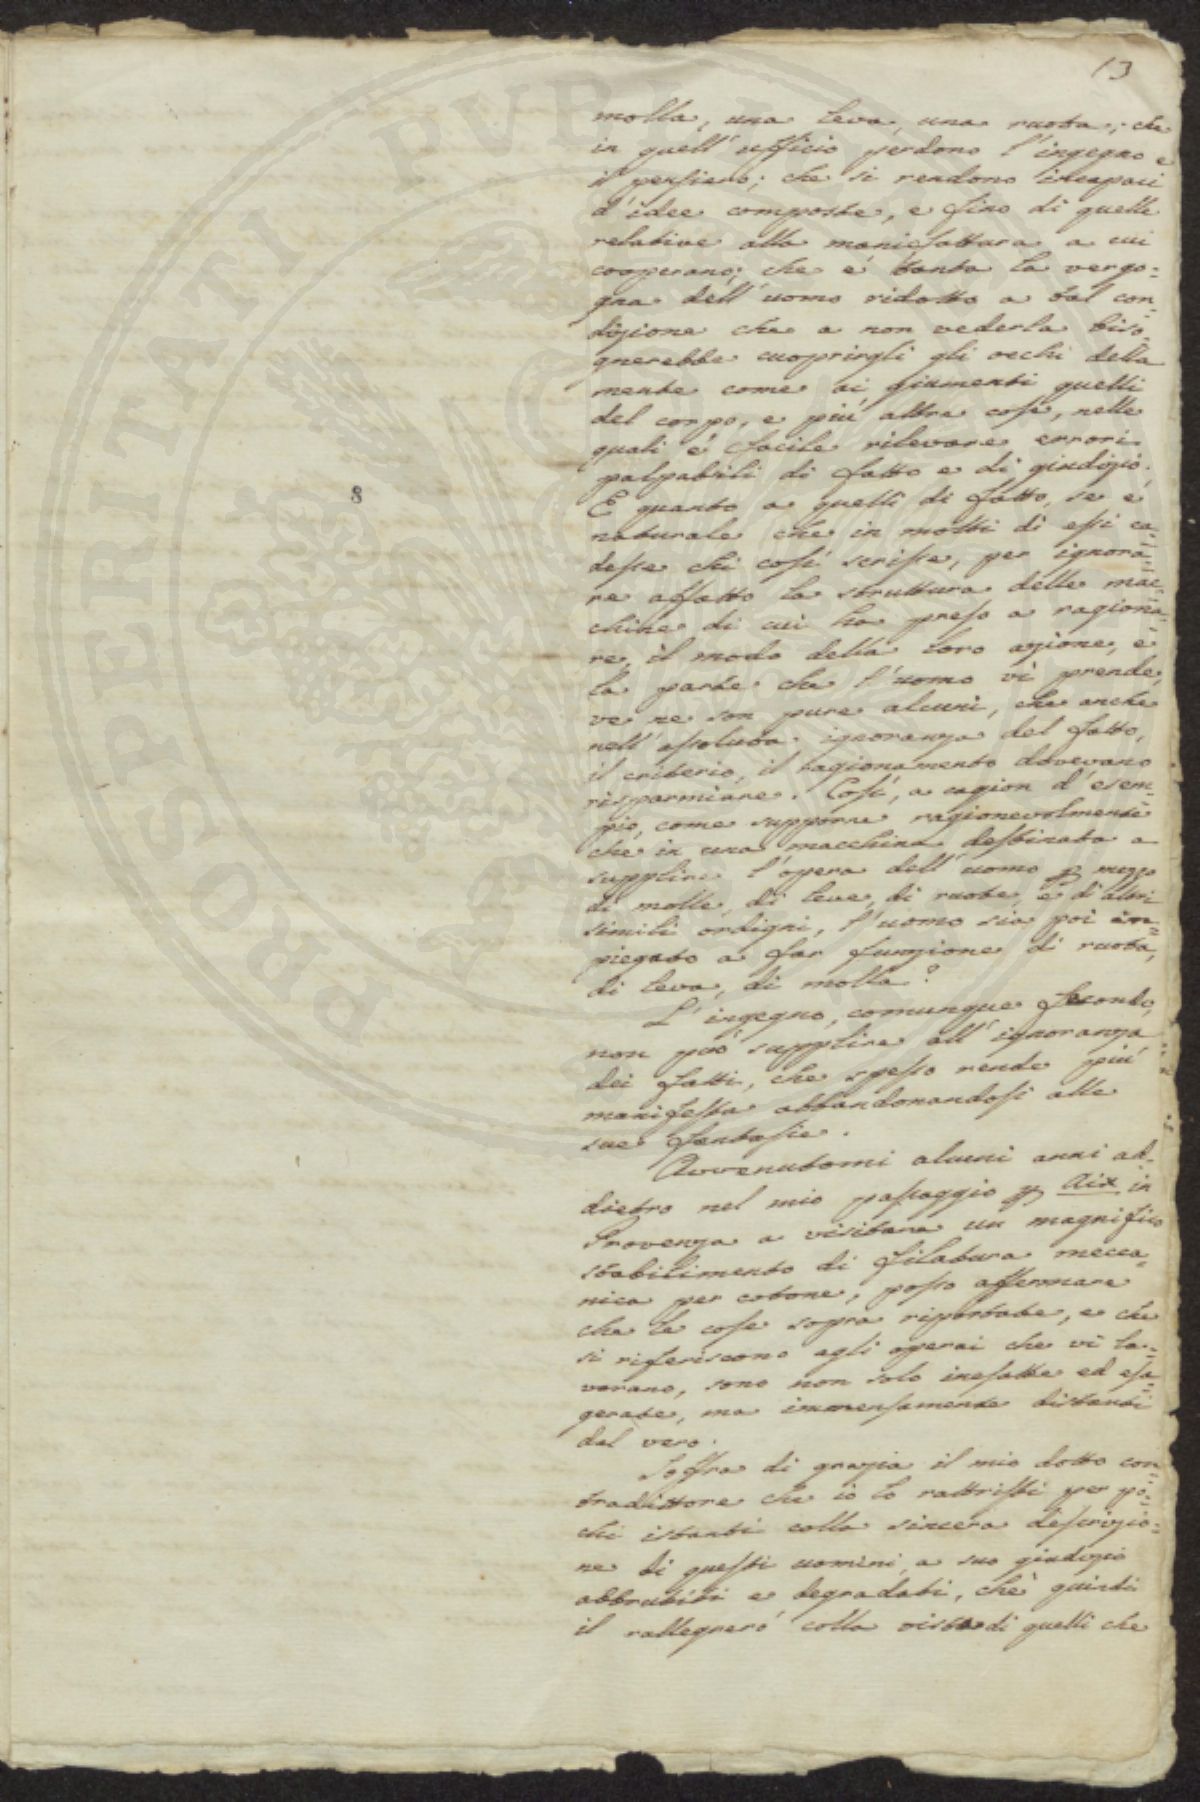 13
molla, una leva, una ruota; che
in quell'ufficio perdono l'ingegno e
il pensiero; che si rendono incapaci
d'idee composte, e fino di quelle
relative alla manifattura a cui
cooperano; che è tanta la vergo=
gna dell'uomo ridotto a tal con=
dizione che a non vederla biso=
gnerebbe cuoprirgli gli occhi della
mente come ai giumenti quelli
del corpo, e più altre cose, nelle
quali è facile rilevare errori
palpabili di fatto e di giudizio.
E quanto a quelli di fatto, se è
naturale che in molti di essi ca=
desse chi così scrisse, per ignora=
re affatto la struttura delle mac=
chine di cui ha preso a ragiona=
re, il modo della loro azione, e
la parte che l'uomo vi prende,
ve ne son pure alcuni, che anche
nell'assoluta ignoranza del fatto,
il criterio, il ragionamento dovevano
risparmiare. Così, a cagion d'esem=
pio, come supporre ragionevolmente
che in una macchina destinata a
supplire l'opera dell'uomo p mezzo
di molle, di leve, di ruote, e di altri
simili ordigni, l'uomo sia poi im=
piegato a far funzione di ruota,
di leva, di molla?
L'ingegno, comunque fecondo,
non può supplire all'ignoranza
dei fatti, che spesso rende più
manifesta abbandonandosi alle
sue fantasie.
Avvenutomi alcuni anni ad=
dietro nel mio passaggio p Aix in
Provenza a visitare un magnifico
stabilimento di filatura mecca=
nica per cotone, posso affermare
che le cose sopra riportate, e che
si riferiscono agli operai che vi la=
vorano, sono non solo inesatte ed esa=
gerate, ma immensamente distanti
dal vero.
Soffra di grazia il mio dotto con=
tradittore che io lo rattristi per po=
chi istanti colla sincera descrizio=
ne di questi uomini, a suo giudizio
abbrutiti e degradati, chè quindi
il rallegrerò colla vista di quelli che
8
PROSPERITATI PVBLI